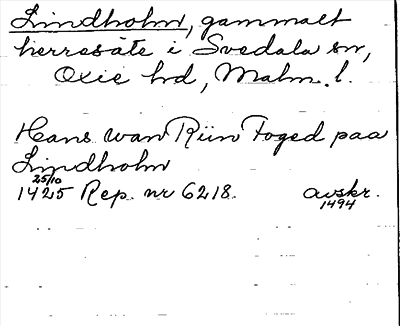 Lindholm, gammalt
herresäte i Svedala sn,
Oxie hd, Malm. l.
Hans wan Riin Foged paa
Lindholm
25/10
1425 Rep. nr 6218. avskr.
1494